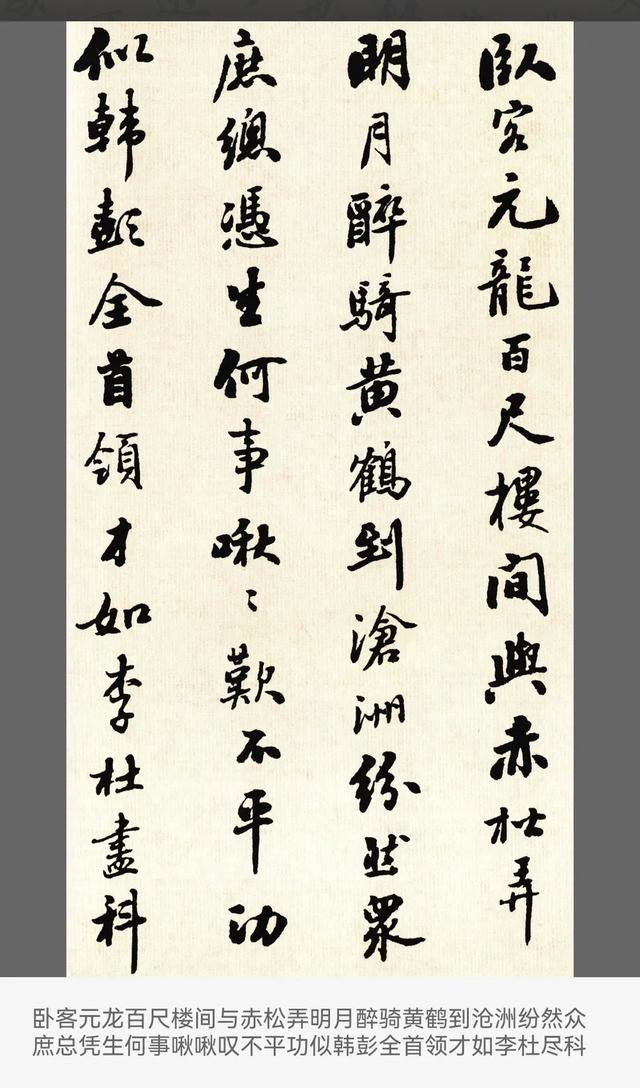 臥客元龍百尺樓間與赤松弄
明月醉騎黄鶴到滄洲紛然眾
庶總憑生何事啾〻歎不平功
似韓彭全首領才如李杜盡科
卧客元龙百尺楼间与赤松弄明月醉骑黄鹤到沧洲纷然众
庶总凭生何事啾啾叹不平功似韩彭全首领才如李杜尽科